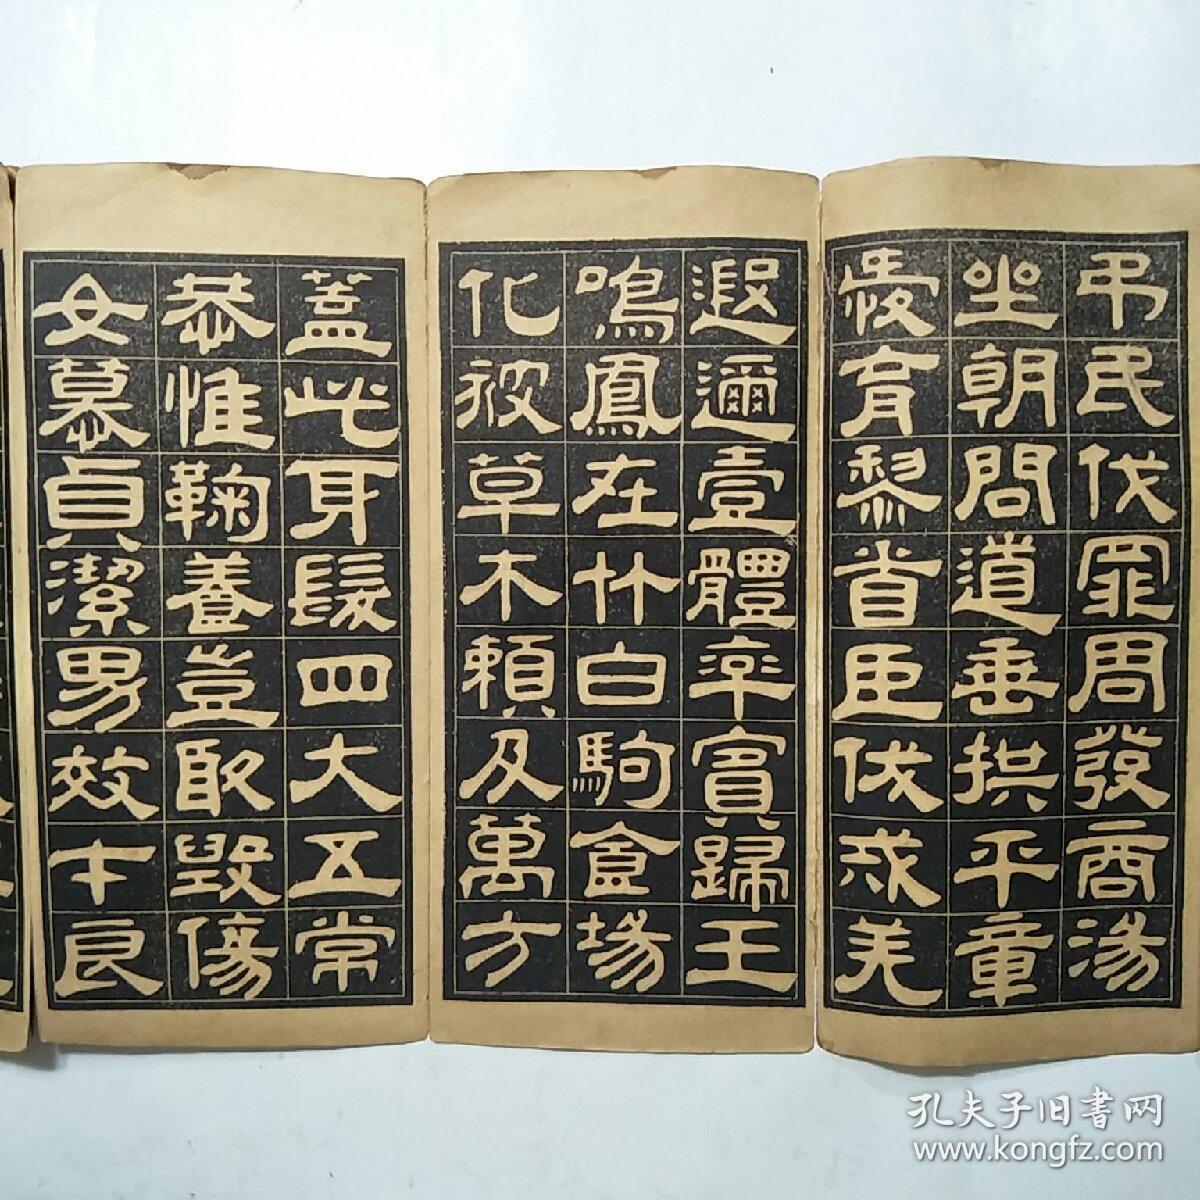 弔民伐罪周發商湯
坐朝問道垂拱平章
愛育黎首臣伏戎羌
遐邇壹體率賓歸王
鳴鳳在竹白駒食場
化彼草木賴及萬方
蓋此身髮四大五常
恭惟鞠養豈敢毀傷
女慕貞潔男效才良
孔夫子旧书网
www.kongfz.com